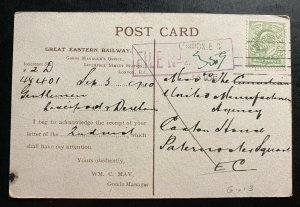 POST CARD
GREAT EASTERN RAILWAY.
GOODS MANAGER'S OFFICE,
LIVERPOOL STREET STATION,
LONDON, E.C.
LONDON. E.C
FILE No. 3,569
Reference No.
2 D
48401 Sep. 3 1910
Gentlemen
Liverpool & Dereham
I beg to acknowledge the receipt of your
letter of the 2nd inst which
shall have my attention.
Yours obediently,
WM. C. MAY,
Goods Manager
Messrs The Canadian
United Manufacturers
Agency
Caxton House
Paternoster Square
E C